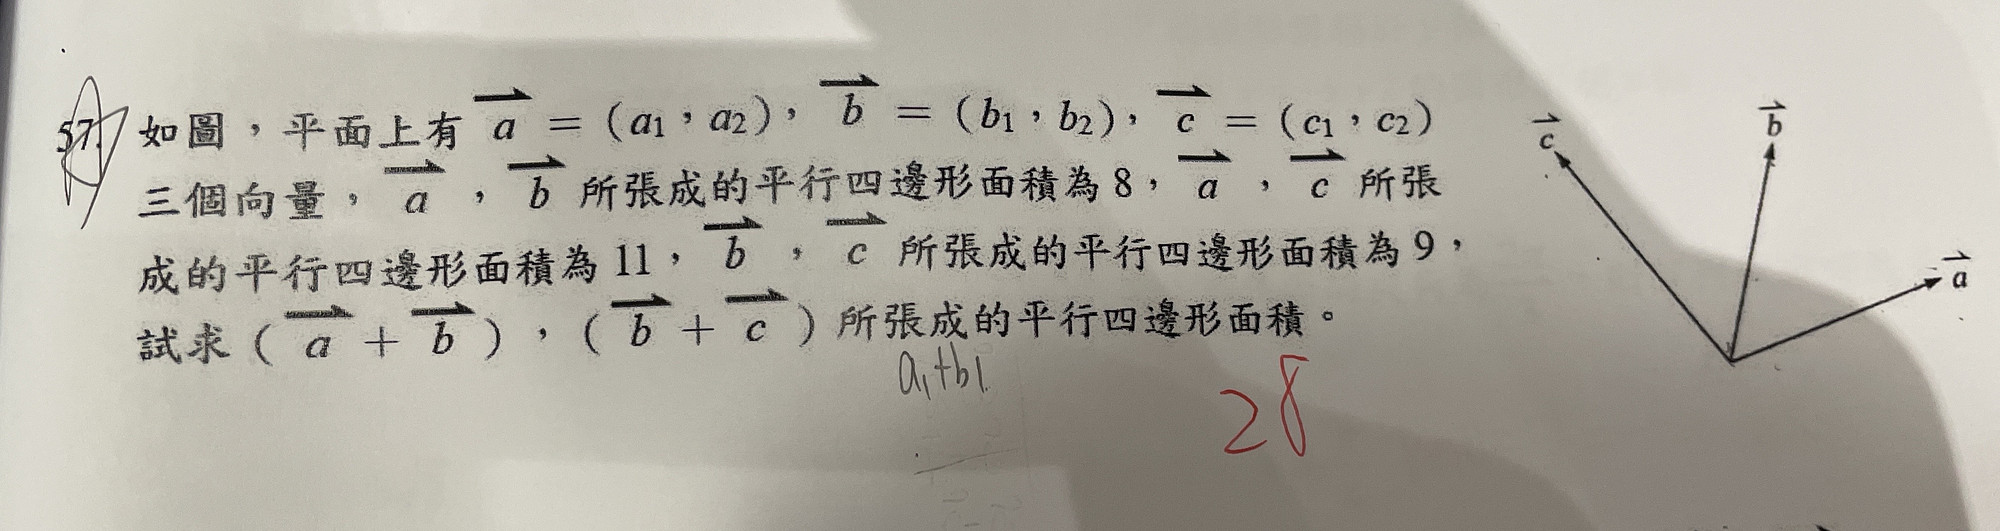 57. 如圖，平面上有 a = (a1，a2)，b = (b1，b2)，c = (c1，c2)
三個向量，a，b 所張成的平行四邊形面積為 8，a，c 所張
成的平行四邊形面積為 11，b，c 所張成的平行四邊形面積為 9，
試求 ( a + b )，( b + c ) 所張成的平行四邊形面積。
a1+b1
28
c
b
a